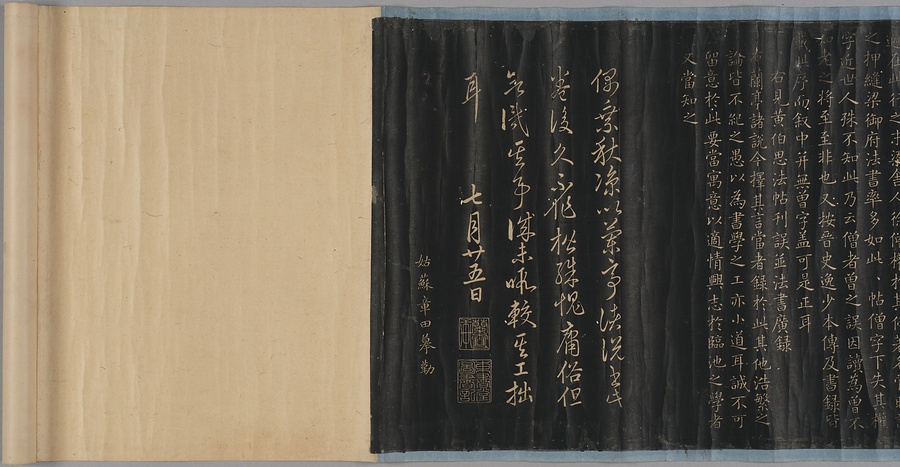 之押縫梁御府法書率多如此此帖僧字下失其權
字近世人殊不知此乃云僧者曽之誤因讀為曽不
知老之將至至非也又按晉史逸少本傳及書錄皆
載此序而叙中并無曽字盖可是正耳
右見黃伯思法帖刊誤並法書廣録
蘭亭諸說今擇其言當者録於此其他浩繁之
論皆不紀之愚以為書學之工亦小道耳誠不可
留意於此要當寓意以適情興志於臨池之學者
又當知之
偶乘秋涼以蘭亭諸說書
卷後久不作楷殊愧庸俗但
較其工拙
耳 七月廿五日
姑蘇章田摹勒